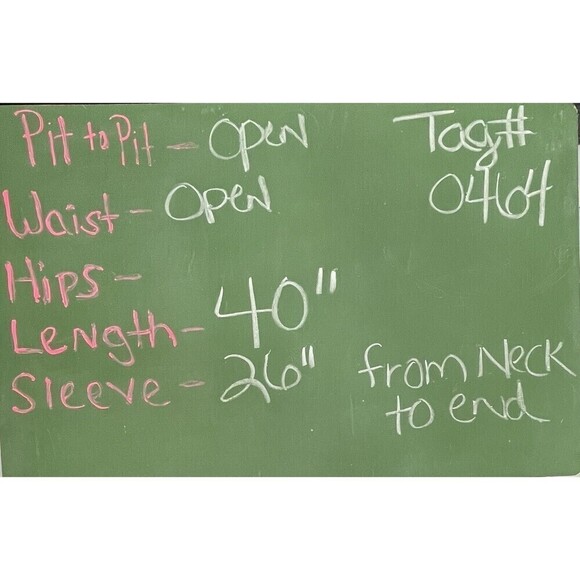 Pit to Pit - OPEN
Tag#
Waist - OPEN
0464
Hips -
Length - 40"
Sleeve - 26"
from Neck
to end